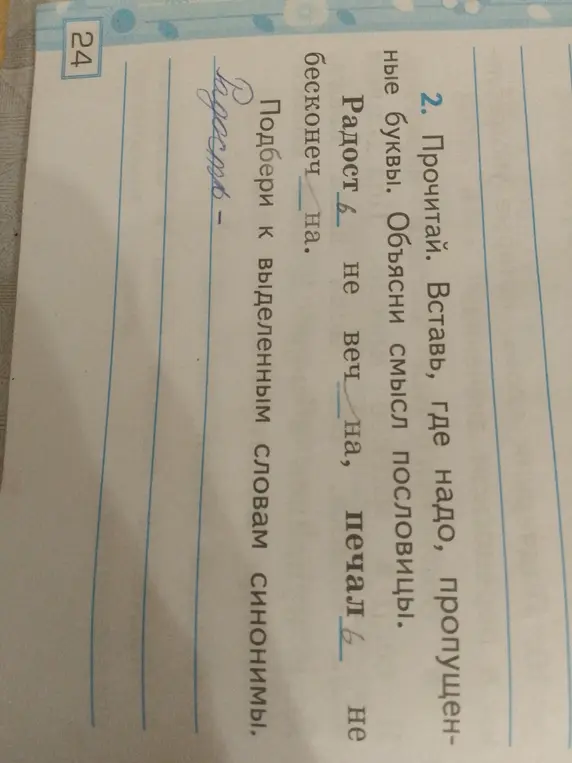 2. Прочитай. Вставь, где надо, пропущен-
ные буквы. Объясни смысл пословицы.
Радость не веч_на, печаль не
бесконеч_на.
Подбери к выделенным словам синонимы.
Радость –
24